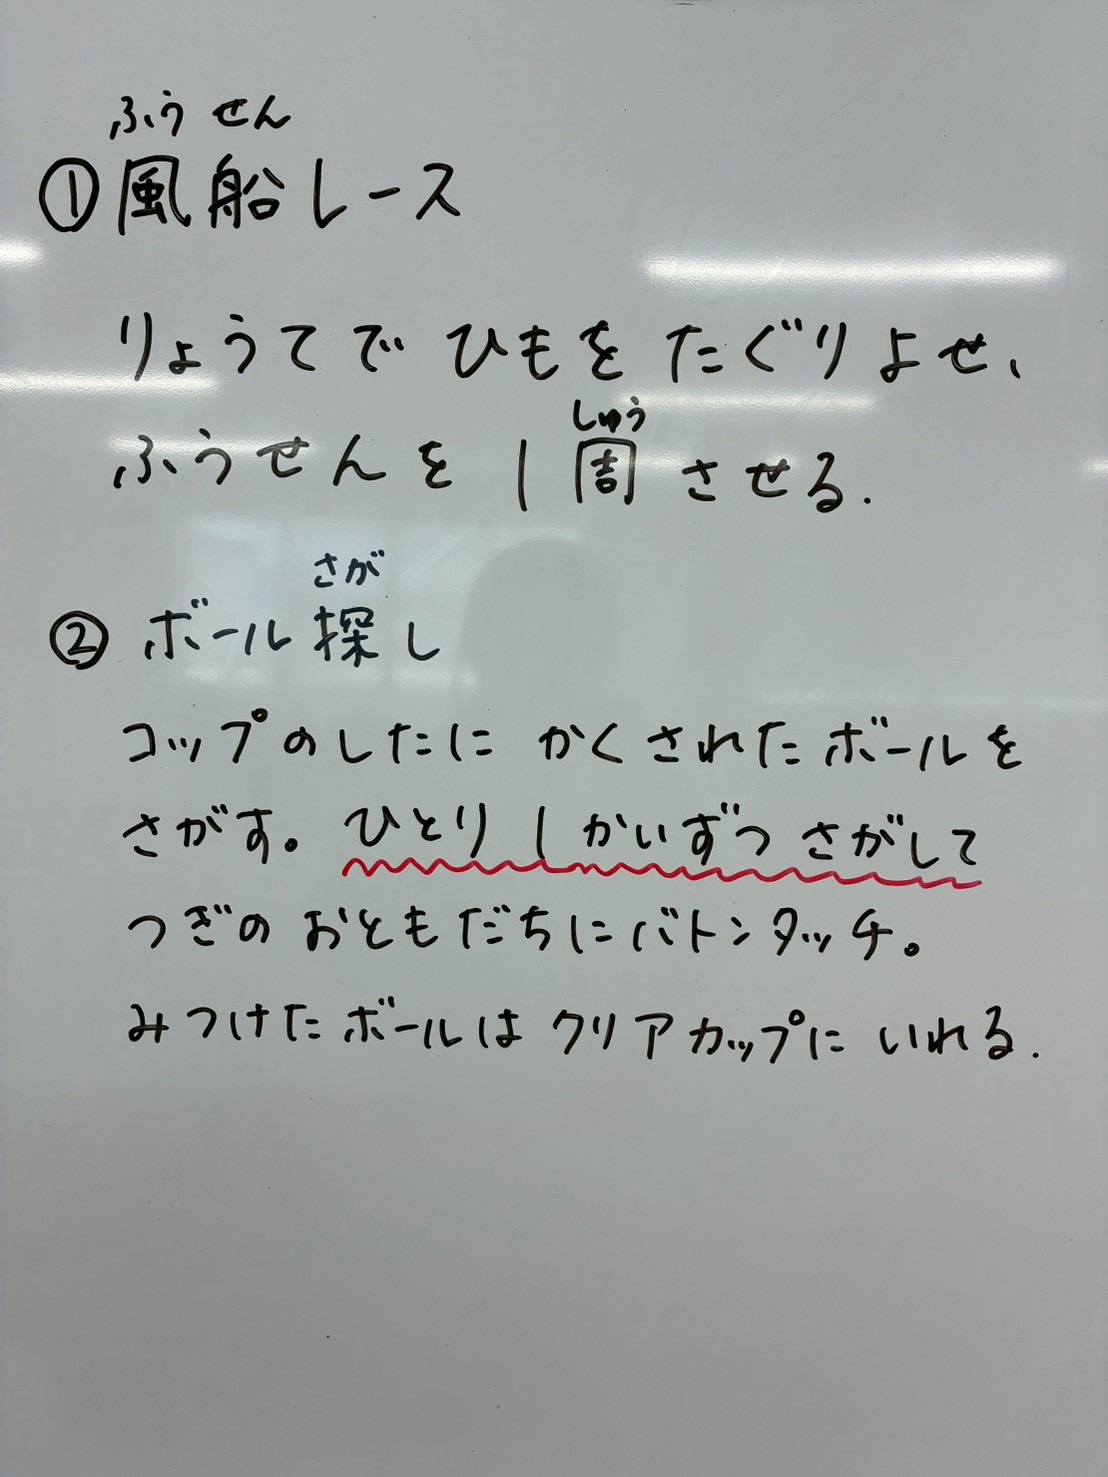 ふうせん
①風船レース
りょうてで ひもを たぐりよせ、
しゅう
ふうせんを 1周させる.
さが
② ボール探し
コップのしたに かくされたボールを
さがす。ひとり 1かいずつ さがして
つぎの おともだちにバトンタッチ。
みつけたボールは クリアカップに いれる.